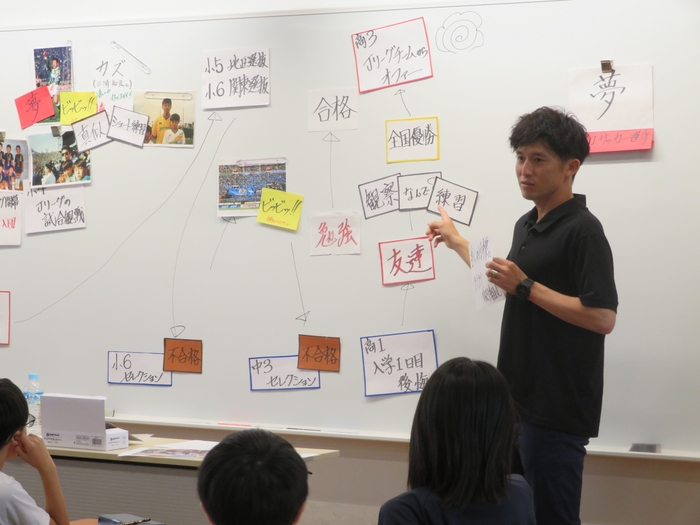 カズ
憧
ビビッ!!
真似
シュート練習
Jリーグの
試合観戦
小5 地区選抜
小6 関東選抜
ビビッ!!
小6
セレクション
不合格
中3
セレクション
不合格
合格
勉強
高3
Jリーグチームから
オファー
全国優勝
観察
なんで
練習
友達
高1
入学1日目
後悔
夢